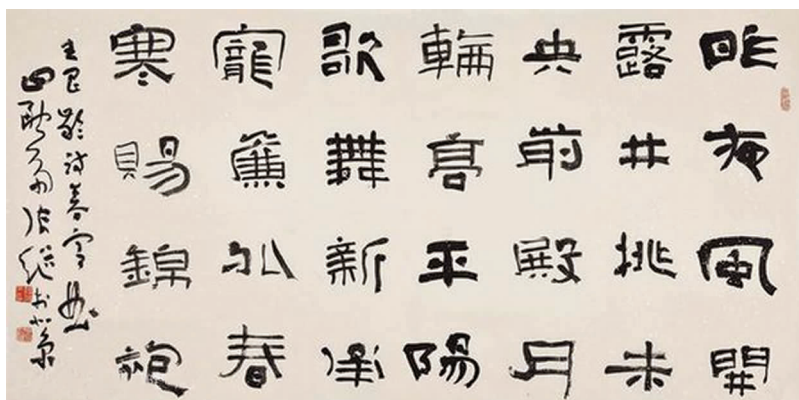 昨夜風開
露井桃未
央前殿月
輪高平陽
歌舞新承
寵簾外春
寒賜錦袍
王昌齡詩春宮曲
張继於北京